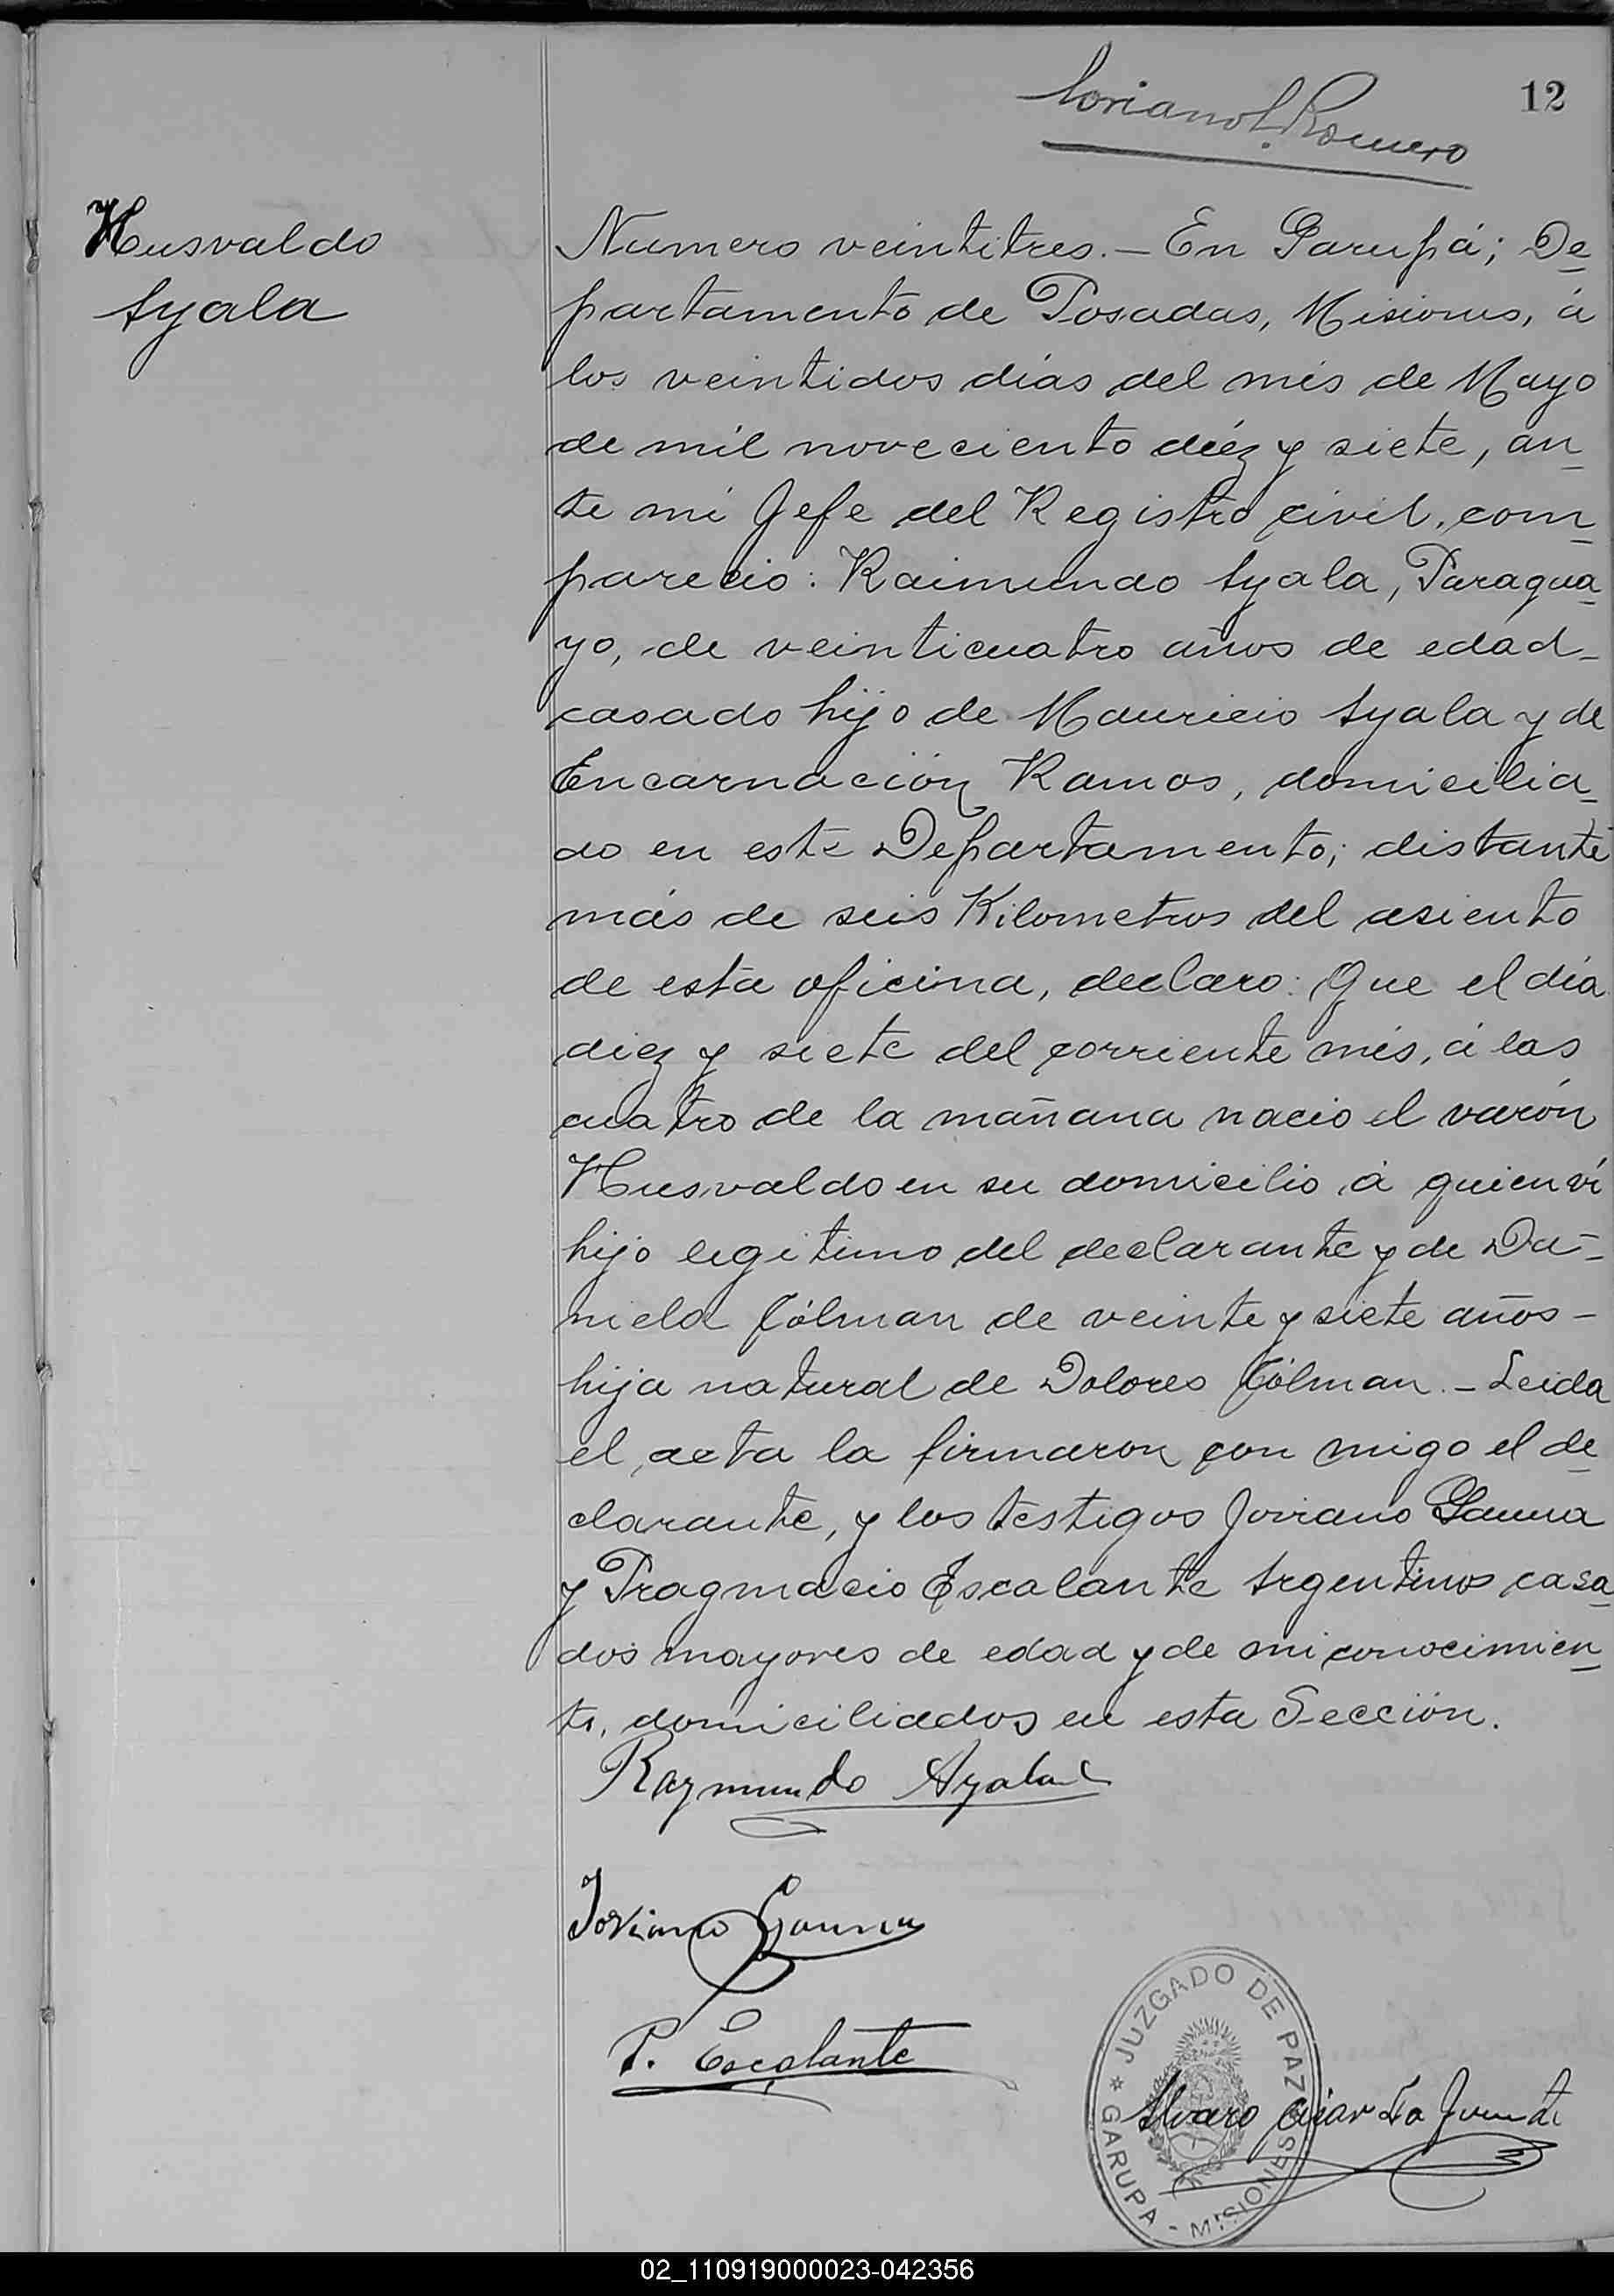 12
Soriano L. Romero
Husvaldo
Ayala
Numero veintitres. — En Garupá; De
partamento de Posadas, Misiones, á
los veintidos días del més de Mayo
de mil noveciento diéz y siete, an
te mi Jefe del Registro civil, com
parecio: Raimundo Ayala, Paragua
yo, de veinticuatro años de edad-
casado hijo de Mauricio Ayala y de
Encarnación Ramos, domicilia
do en este Departamento; distante
más de seis Kilometros del asiento
de esta oficina, declaro: Que el día
diez y siete del corriente més, á las
cuatro de la mañana nacio el varón
Husvaldo en su domicilio á quien ví
hijo legitimo del declarante y de Da-
niela Cólman de veinte y siete años-
hija natural de Dolores Cólman. - Leida
el acta la firmaron con migo el de
clarante, y los testigos Joviano Gauna
y Pragmacio Escalante Argentinos casa
dos mayores de edad y de mi conocimien
to, domiciliados en esta Sección.
Raymundo Ayala
Joviano Gauna
P. Escalante
JUZGADO DE PAZ
GARUPA - MISIONES
Alvaro César La
02_110919000023-042356